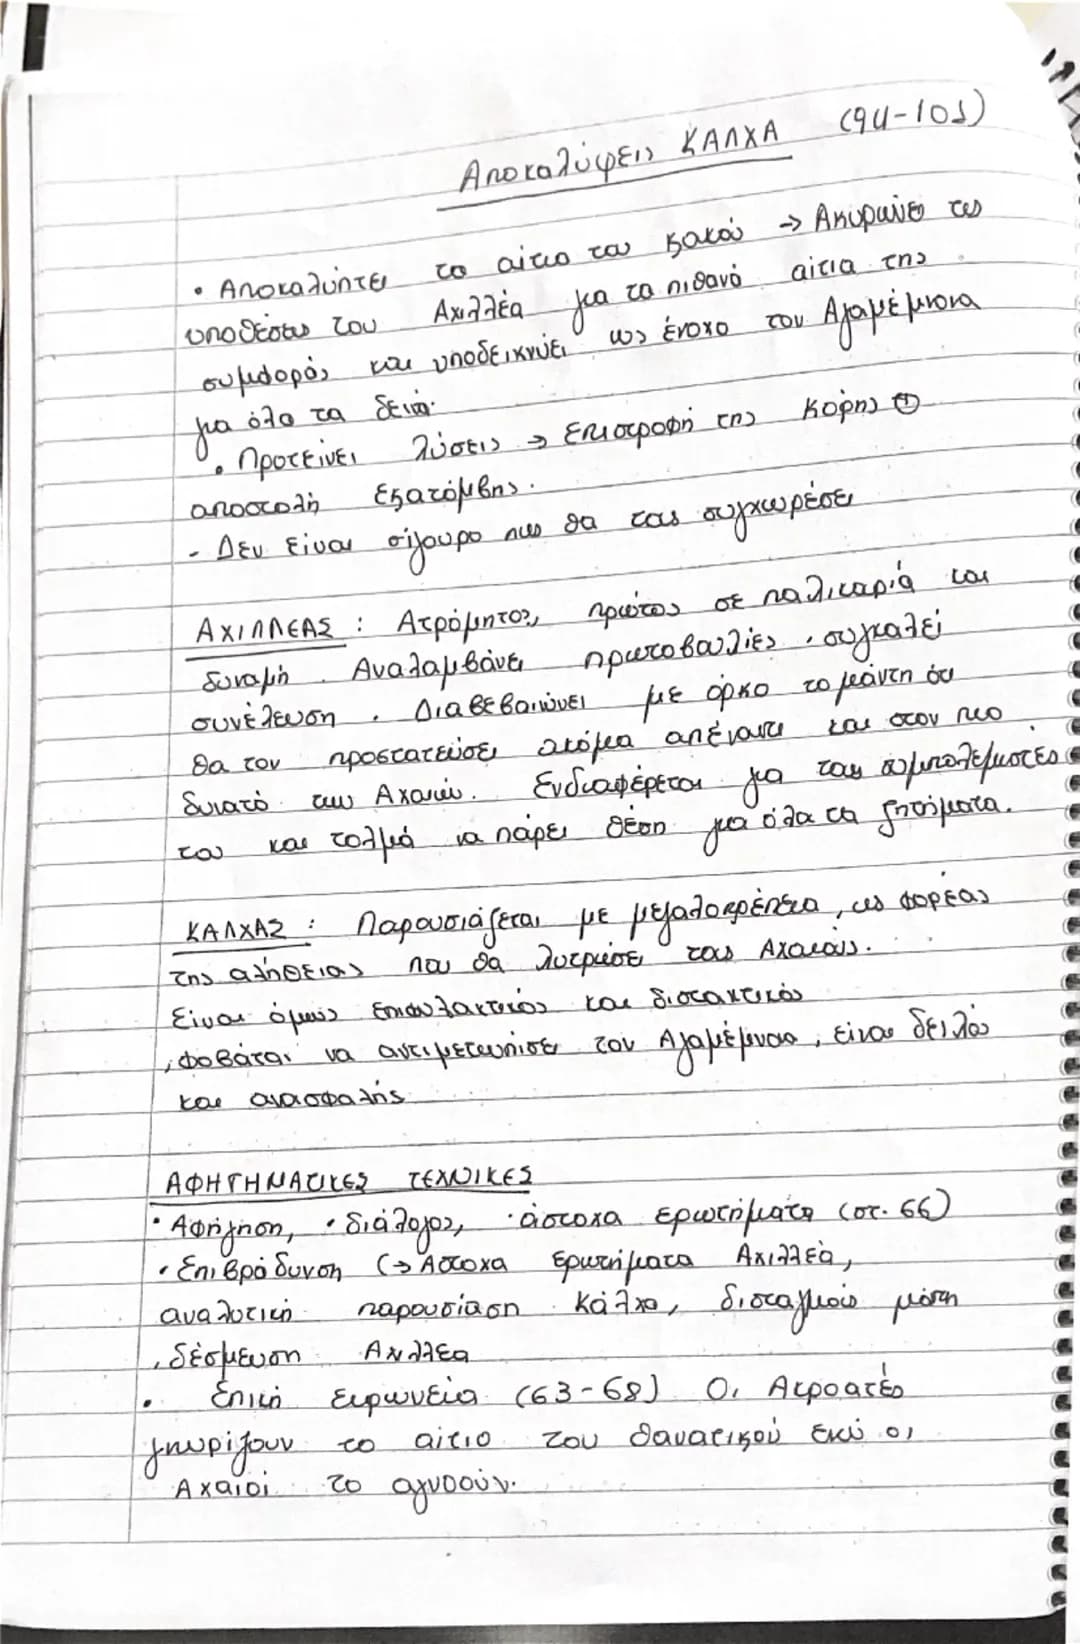 Αποκαλύψεις ΚΑΛΧΑ (94-101)
• Αποκαλύπτει το αίτιο του κακού → Ακυρώνει τις
υποθέσεις του Αχιλλέα για τα πιθανά αίτια της
συμφοράς και υποδεικνύει ως ένοχο τον Αγαμέμνονα
για όλα τα δεινά.
• Προτείνει λύσεις → Επιστροφή της κόρης +
αποστολή εκατόμβης.
- Δεν είναι σίγουρο πως θα τους συγχωρέσει
ΑΧΙΛΛΕΑΣ : Ατρόμητος, πρώτος σε παλικαριά και
δυναμή. Αναλαμβάνει πρωτοβουλίες, συγκαλεί
συνέλευση. Διαβεβαιώνει με όρκο το μάντη ότι
θα τον προστατεύσει ακόμα απέναντι και στον πιο
δυνατό των Αχαιών. Ενδιαφέρεται για τους συμπολεμιστές
του και τολμά να πάρει θέση για όλα τα ζητήματα.
ΚΑΛΧΑΣ : Παρουσιάζεται με μεγαλοπρέπεια, ως φορέας
της αλήθειας που θα λυτρώσει τους Αχαιούς.
Είναι όμως επιφυλακτικός και διστακτικός
, φοβάται να αντιμετωπίσει τον Αγαμέμνονα, είναι δειλός
και ανασφαλής.
ΑΦΗΓΗΜΑΤΙΚΕΣ ΤΕΧΝΙΚΕΣ
• Αφήγηση, • διάλογος, • άστοχα ερωτήματα (στ. 66)
• Επιβράδυνση (→ Άστοχα ερωτήματα Αχιλλέα,
αναλυτική παρουσίαση Κάλχα, δισταγμοί μάντη
, δέσμευση Αχιλλέα
• Επική ειρωνεία (63-68) Οι Ακροατές
γνωρίζουν το αίτιο του θανατικού ενώ οι
Αχαιοί το αγνοούν.